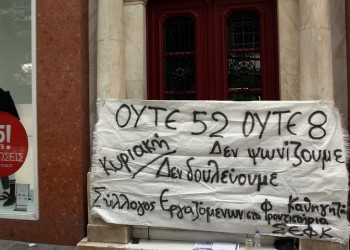 5!
ΟΥΤΕ 52 ΟΥΤΕ 8
Κυριακή Δεν ψωνίζουμε
Δεν δουλεύουμε
Σύλλογος Εργαζομένων στα Φροντιστήρια
Καθηγητών
ΣΕΦΚ